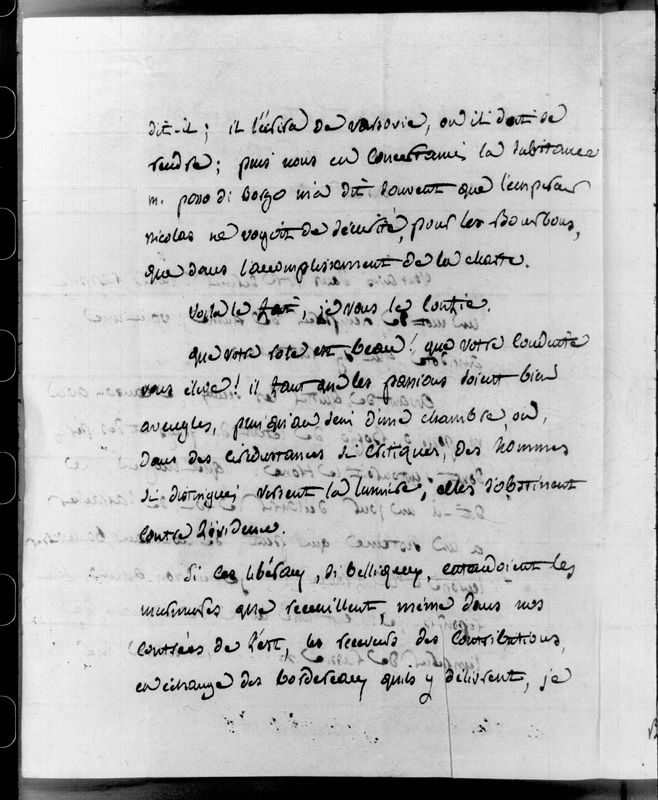 dit-il; il l'écrira de varsovie, où il doit se
rendre; puis nous en concerterons la substance
m. pozo di borgo m'a dit souvent que l'empereur
nicolas ne voyoit de sécurité, pour les Bourbons,
que dans l'accomplissement de la charte.
voila le fait, je vous le confie.
que votre rote est beau! que votre conduite
vous élève! il faut que les passions soient bien
aveugles, puisqu'au sein d'une chambre, où,
dans des circonstances si critiques, des hommes
si distingués versent la lumière, elles s'obstinent
contre l'évidence.
Si ces libéraux, si belliqueux, entendoient les
murmures que recueillent, même dans nos
contrées de l'est, les receveurs des contributions,
en échange des bordereaux qu'ils y délivrent, je